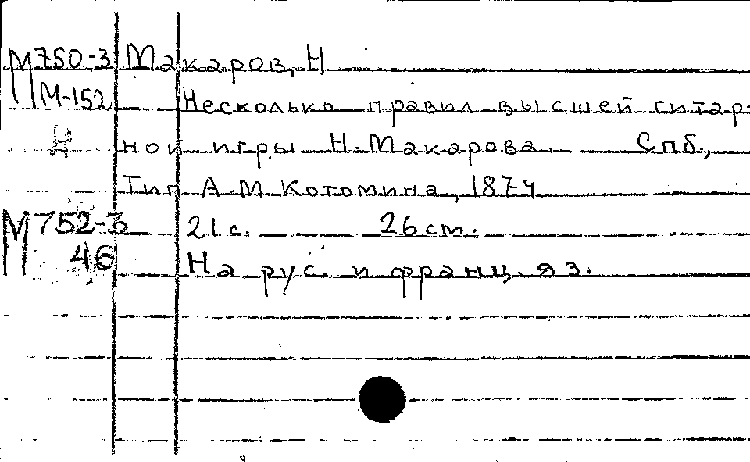 М750-3 Макаров, Н
М-152 Несколько правил высшей гитар-
ной игры Н. Макарова Спб,
Тип А. М. Котомина, 1874
М752-3 21 с. 26 см.
46 На рус. и франц. яз.